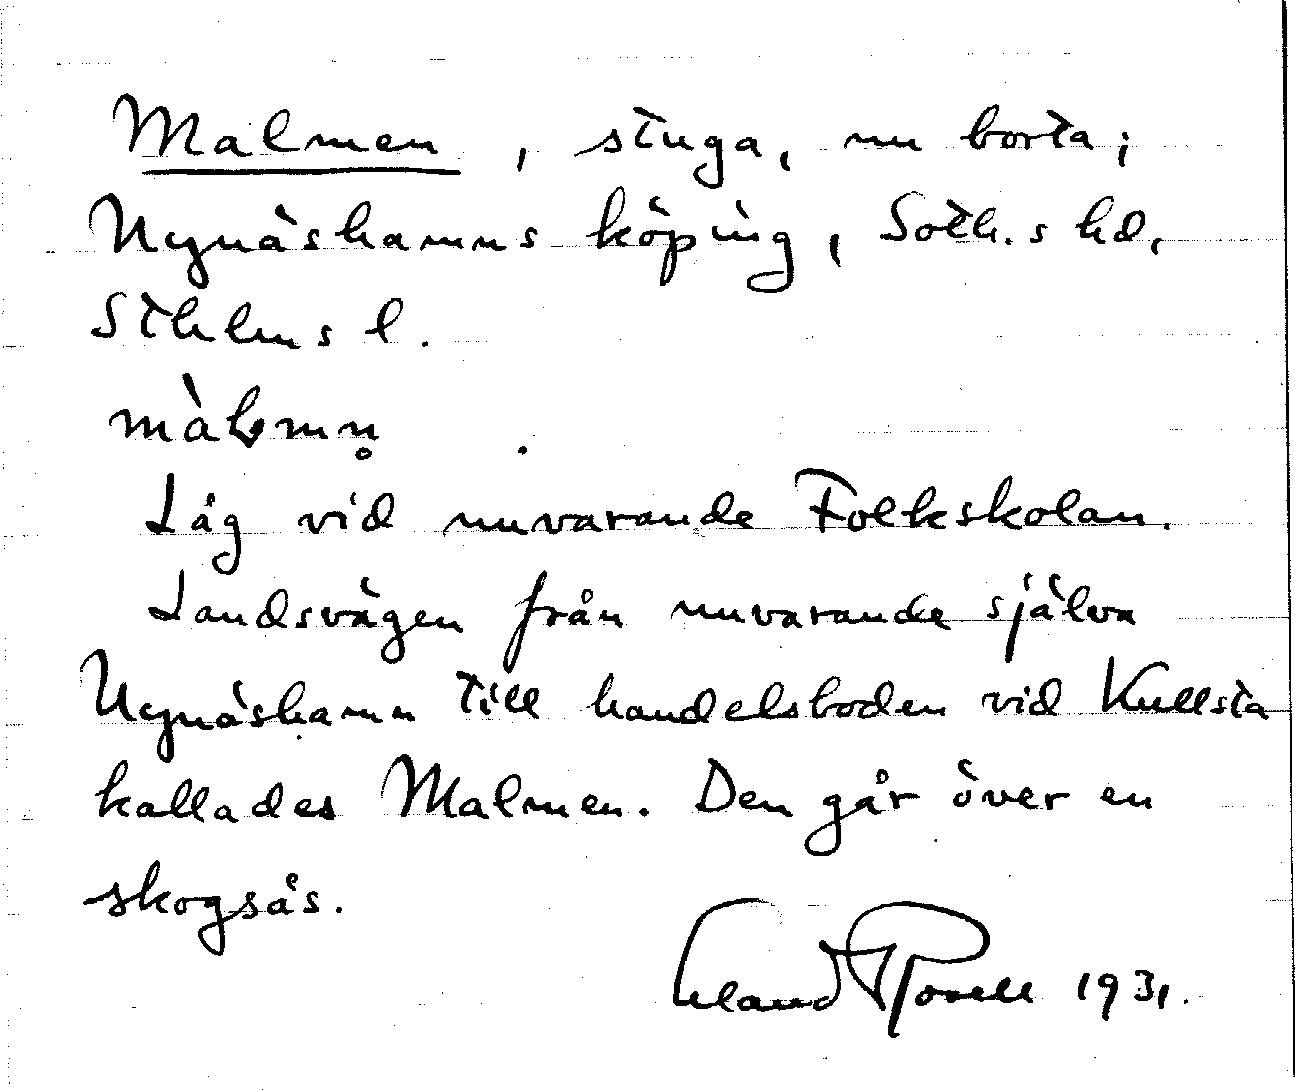 Malmen, stuga, nu borta;
Nynäshamns köping, Soth.s hd,
Sthlms l.
màlmn̥
Låg vid nuvarande Folkskolan.
Landsvägen från nuvarande själva
Nynäshamn till handelsboden vid Kullsta
kallades Malmen. Den går över en
skogsås.
1931.